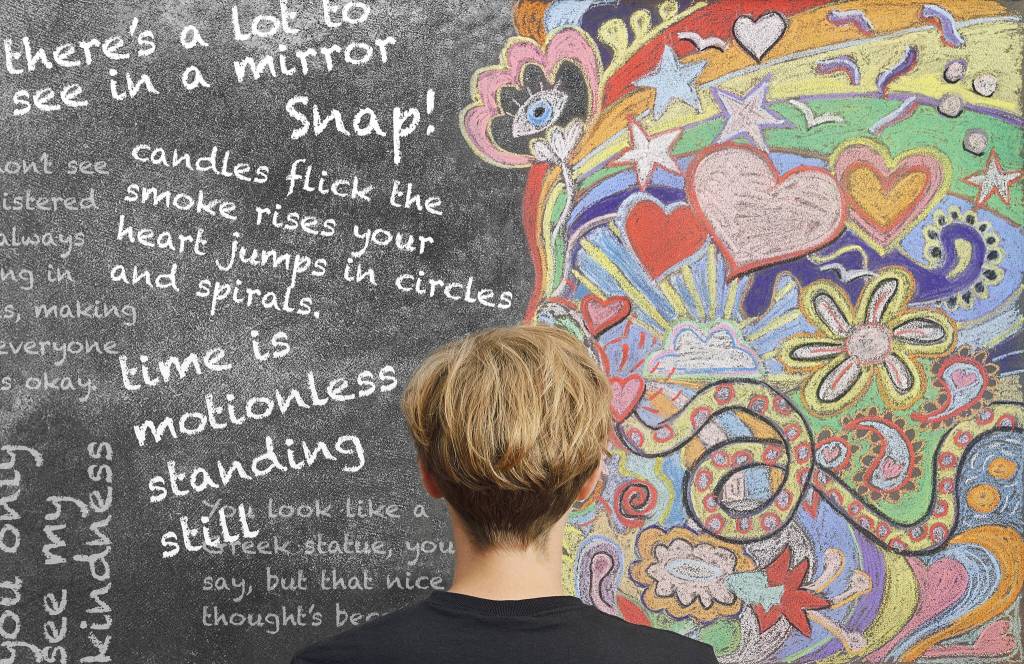 there's a lot to
see in a mirror
Snap!
candles flick the
smoke rises your
heart jumps in circles
and spirals.
see
istered
always
in
making
everyone
okay.
time is
motionless
standing
still
You look like a
Greek statue, you
say, but that nice
thought's
you only
see my
kindness